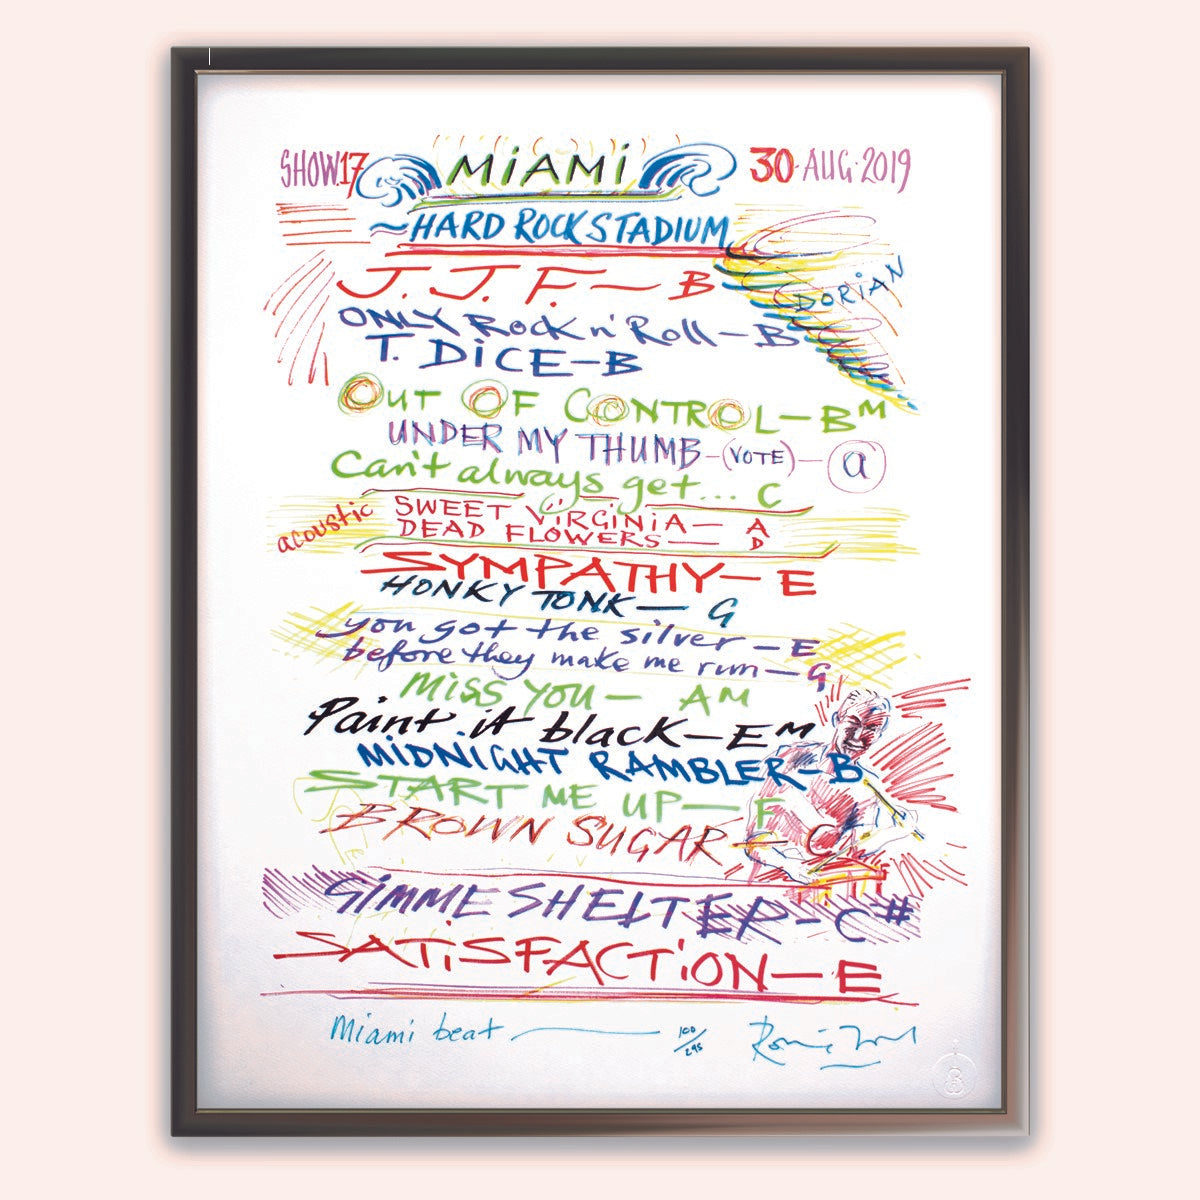 SHOW.17 MiAMi 30·AUG·2019
~HARD ROCK STADIUM
DORiAN
J. J. F. — B
ONLY Rock n' Roll — B
T. DiCE — B
OUT OF CONTROL — BM
UNDER MY THUMB — (VOTE) — a
Can't always get... C
acoustic
SWEET ViRGiNiA — A
DEAD FLOWERS — D
SYMPATHY — E
HONKY TONK — G
you got the silver — E
before they make me run — G
MiSS YOU — AM
Paint it black — EM
MiDNiGHT RAMBLER — B
START ME UP — F
BROWN SUGAR — C
GiMME SHELTER — C#
SATiSFACTiON — E
Miami beat — 100/295 Ronnie Wood